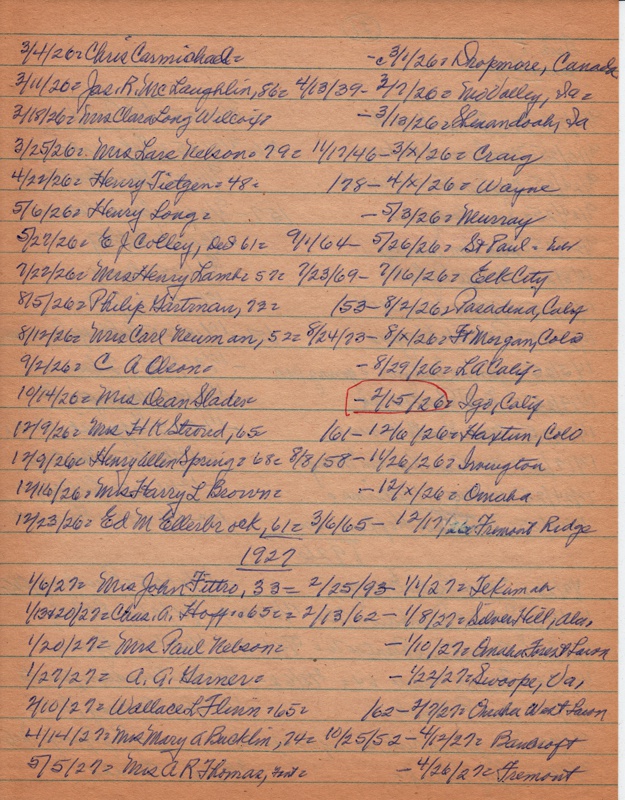 3/4/26= Chris Carmichael= - 3/1/26= Dropmore, Canada
3/11/26= Jas. R. McLaughlin, 86= 4/13/39 - 3/7/26= Mo Valley, Ia=
3/18/26= Mrs Clara Long Wilcox= - 3/13/26= Shenandoah, Ia
3/25/26= Mrs Lars Nelson= 79= 11/17/46 - 3/x/26= Craig
4/22/26= Henry Tietgen= 48= 178 - 4/x/26= Wayne
5/6/26= Henry Long= - 5/3/26= Murray
5/27/26= E J Colley, 61= 9/1/64 - 5/26/26= St Paul=
7/22/26= Mrs Henry Lamb= 57= 7/23/69 - 7/16/26= Elk City
8/5/26= Philip Hartman, 73= 153 - 8/2/26= Pasadena, Calif
8/12/26= Mrs Carl Neuman, 52= 8/24/73 - 8/x/26= Ft Morgan, Colo
9/2/26= C A Olson= - 8/29/26= L A Calif=
10/14/26= Mrs Dean Slader= - 2/15/26= Igo, Calif
12/9/26= Mrs H K Stroud, 65= 161 - 12/6/26= Haxtun, Colo
12/9/26= Henry Allen Spring= 68= 8/8/58 - 11/26/26= Irvington
12/16/26= Mrs Harry L Brown= - 12/x/26= Omaha
12/23/26= Ed M Ellerbrock, 61= 3/6/65 - 12/17/26= Fremont Ridge
1927
1/6/27= Mrs John Fittro, 33= 2/25/93 - 1/1/27= Tekamah
1/13&20/27= Chas. A. Hoff= 65= 2/13/62 - 1/8/27= Silver Hill, Ala,
1/20/27= Mrs Paul Nelson= - 1/10/27= Omaha Forest Lawn
1/27/27= A. G. Garner= - 1/22/27= Swoope, Va,
2/10/27= Wallace L Flinn= 65= 162 - 2/7/27= Omaha West Lawn
4/14/27= Mrs Mary A Bucklin, 74= 10/25/52 - 4/12/27= Bancroft
5/5/27= Mrs A R Thomas, - 4/26/27= Fremont